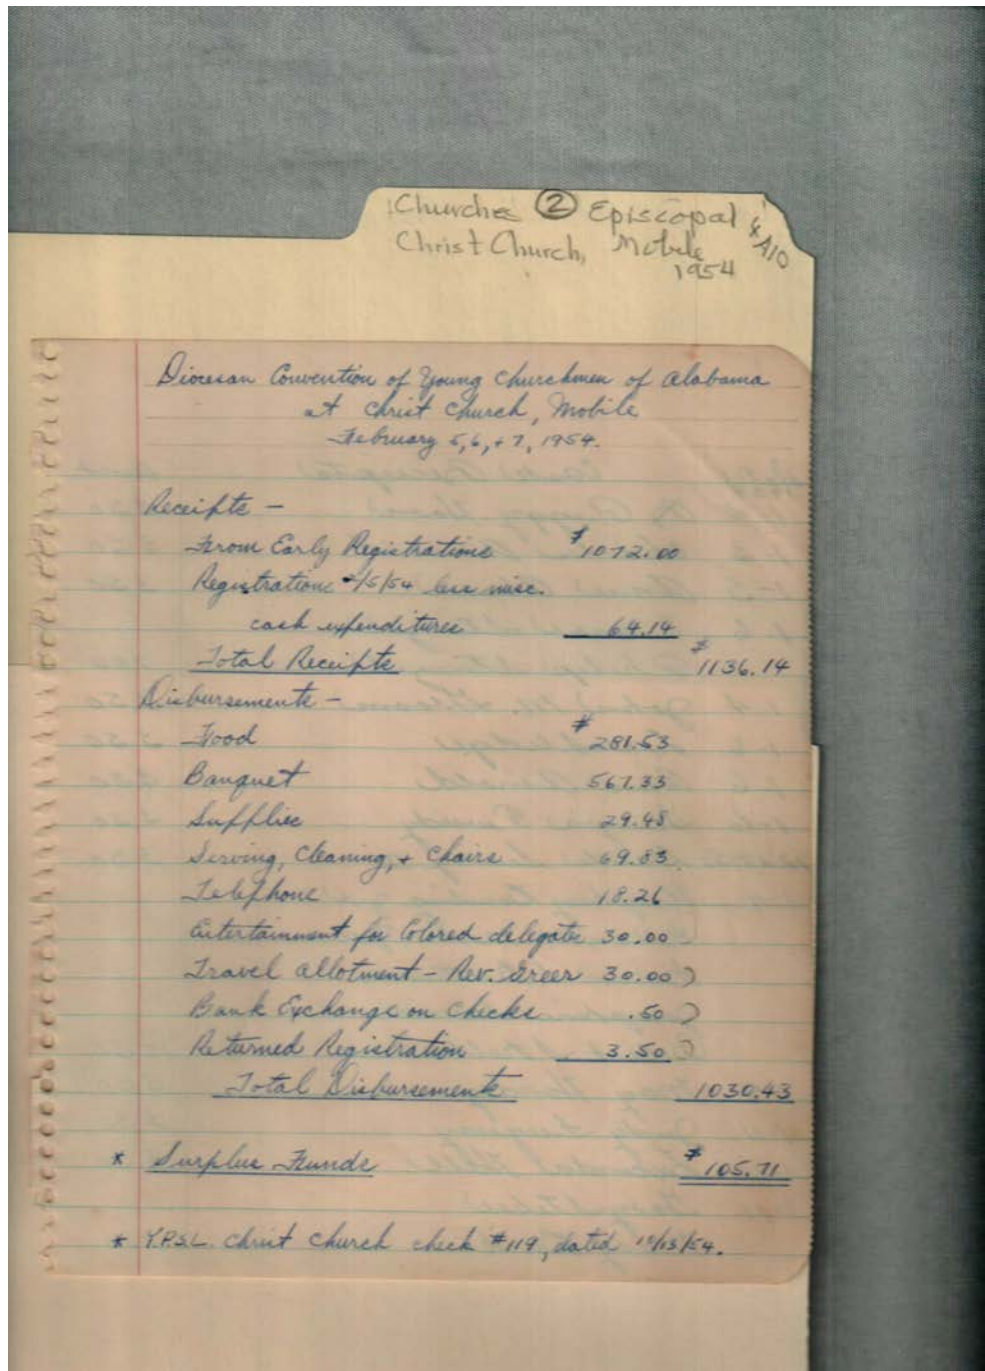 Churches ② Episcopal
& A10
Christ Church, Mobile
1954
Diocesan Convention of Young Churchmen of Alabama
at Christ Church, Mobile
February 5, 6, + 7, 1954.
Receipts —
From Early Registrations $1072.00
Registrations 2/5/54 less misc.
cash expenditures 64.14
Total Receipts $1136.14
Disbursements —
Food $281.53
Banquet 567.33
Supplies 29.48
Serving, Cleaning, + Chairs 69.83
Telephone 18.26
Entertainment for Colored delegates 30.00
Travel allotment - Rev. Greer 30.00 )
Bank Exchange on Checks .50 )
Returned Registration 3.50 )
Total Disbursements 1030.43
* Surplus Funds $105.71
* Y.P.S.L. Christ Church check #119, dated /13/54.